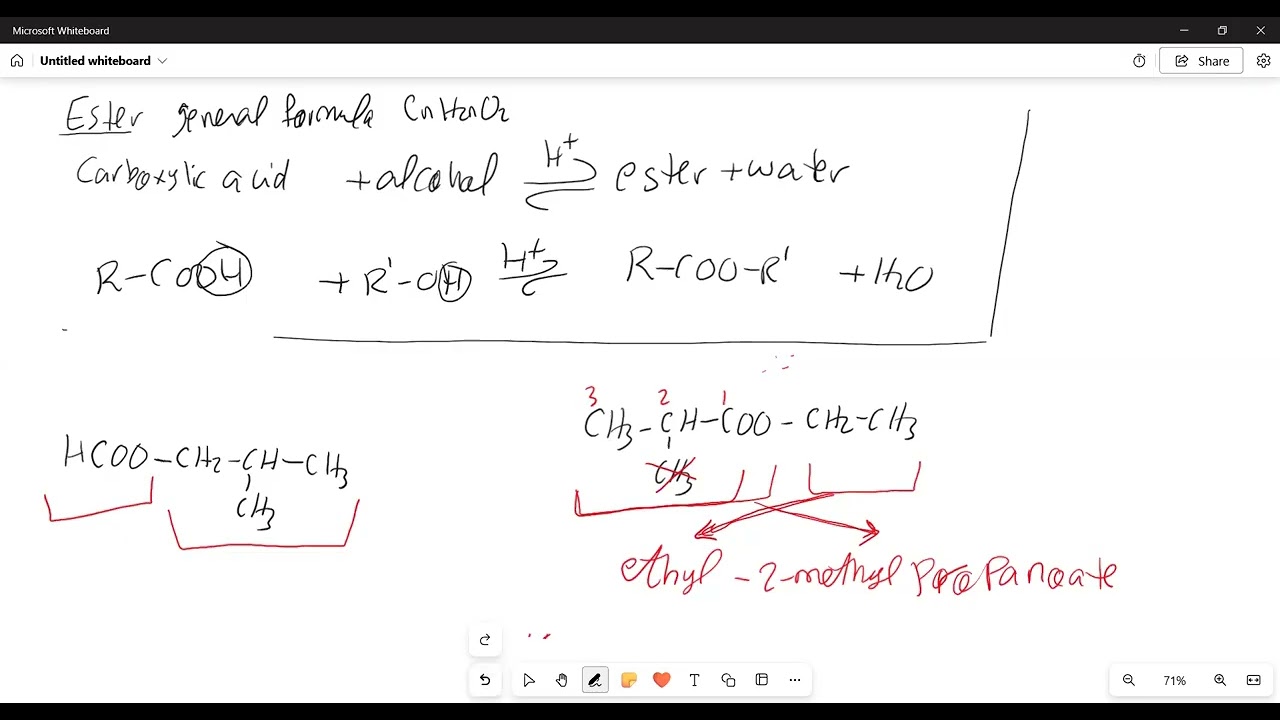 Microsoft Whiteboard
Untitled whiteboard
Share
Ester general formula CnH2nO2
Carboxylic acid + alcohol H+ ester + water
R-COOH + R'-OH H+ R-COO-R' + H2O
3 2 1
CH3-CH-COO-CH2-CH3
CH3
HCOO-CH2-CH-CH3
CH3
ethyl -2-methyl propanoate
71%